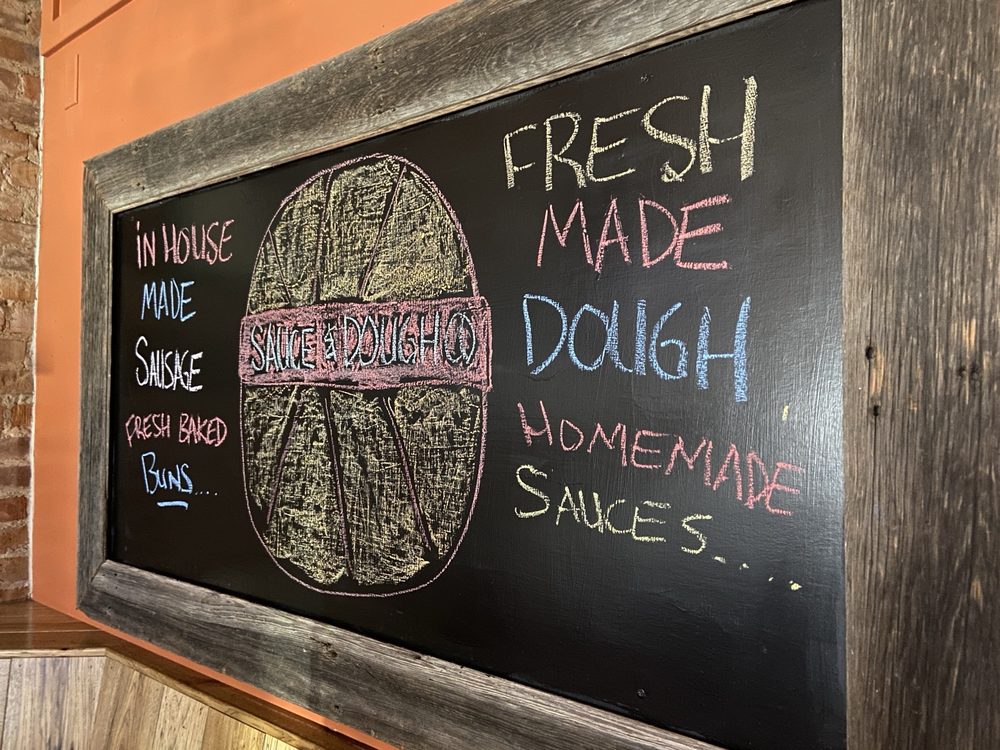 iN HOUSE
MADE
SAUSAGE
FRESH BAKED
BUNS....
SAUCE & DOUGH CO
FRESH
MADE
DOUGH
HOMEMADE
SAUCES.....